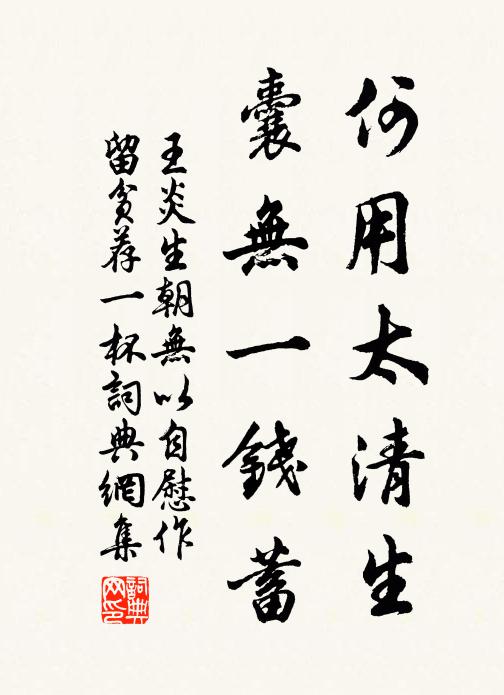 何用太清生
囊無一錢蓄
王炎生朝無以自慰作
留貧荐一杯詞典網集
詞典網印